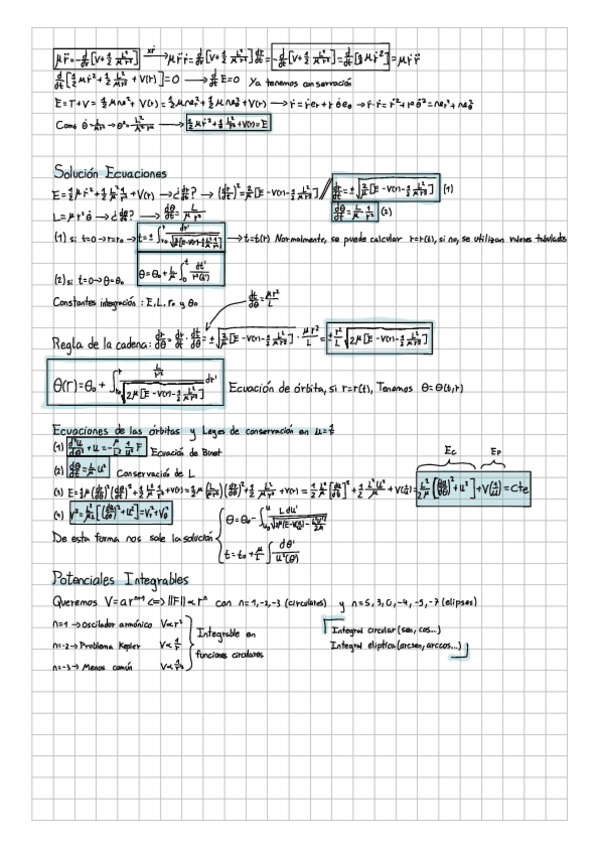 μr̈ = -d/dr[V+1/2 L²/μr²] —xṙ→ μṙr̈ = -d/dr[V+1/2 L²/μr²]dr/dt = -d/dt[V+1/2 L²/μr²] = d/dt[1/2 μṙ²] = μṙr̈
d/dt[1/2 μṙ²+1/2 L²/μr²+V(r)]=0 → d/dt E=0 Ya tenemos conservación
E=T+V= 1/2 μv²+V(r)= 1/2 μvr²+1/2 μvθ²+V(r) → ṙ=ṙer+rθ̇eθ → ṙ·ṙ=ṙ²+r²θ̇²=vr²+vθ²
Como θ̇=L/μr² → θ̇²=L²/μ²r⁴ → 1/2 μṙ²+1/2 L²/μr²+V(r)=E
Solución Ecuaciones
E=1/2 μṙ²+1/2 L²/μ 1/r²+V(r) → ¿dr/dt? → (dr/dt)²=2/μ[E-V(r)-1/2 L²/μr²] // dr/dt=±√(2/μ[E-V(r)-1/2 L²/μr²]) (1)
L=μr²θ̇ → ¿dθ/dt? → dθ/dt=L/μr² dθ/dt=L/μ 1/r² (2)
(1) si t=0→r=r₀ → t=±∫r₀^r dr'/√(2/μ[E-V(r)-1/2 L²/μr²]) → t=t(r) Normalmente, se puede calcular r=r(t), si no, se utilizan valores tabulados
(2) si t=0→θ=θ₀ θ=θ₀+L/μ∫₀^t dt'/r²(t')
Constantes integración: E, L, r₀ y θ₀
dt/dθ=μr²/L
Regla de la cadena: dr/dθ=dr/dt·dt/dθ=±√(2/μ[E-V(r)-1/2 L²/μr²])·μr²/L=±r²/L√(2μ[E-V(r)-1/2 L²/μr²])
θ(r)=θ₀+∫r₀^r L/r²/√(2μ[E-V(r)-1/2 L²/μr²]) dr' Ecuación de órbita, si r=r(t), Tenemos θ=θ(t,r)
Ecuaciones de las órbitas y Leyes de conservación en u=1/r
(1) d²u/dθ²+u=-μ/L² 1/u² F Ecuación de Binet
(2) dθ/dt=L/μ u² Conservación de L
Ec Ep
(3) E=1/2 μ(dr/dθ)²(dθ/dt)²+1/2 L²/μ 1/r²+V(r)=1/2 μ(L/μr²)²(dr/dθ)²+1/2 L²/μ 1/r²+V(r)=1/2 L²/μ[du/dθ]²+1/2 L²u²/μ+V(1/u)=L²/2μ[(du/dθ)²+u²]+V(1/u)=cte
(4) v²=L²/μ²[(du/dθ)²+u²]=vr²+vθ²
De esta forma nos sale la solución { θ=θ₀-∫u₀^u L du'/√(2μ(E-V(1/u)-L²u²/2μ))
t=t₀+μ/L∫dθ'/u²(θ)
Potenciales Integrables
Queremos V=arⁿ⁺¹ <=> ||F||∝rⁿ con n=1,-2,-3 (circulares) y n=5,3,0,-4,-5,-7 (elipses)
n=1→Oscilador armónico V∝r²
n=-2→Problema Kepler V∝1/r
n=-3→Menos común V∝1/r²
Integrable en
funciones circulares
Integral circular (sen, cos...)
Integral elíptica (arcsen, arccos...)